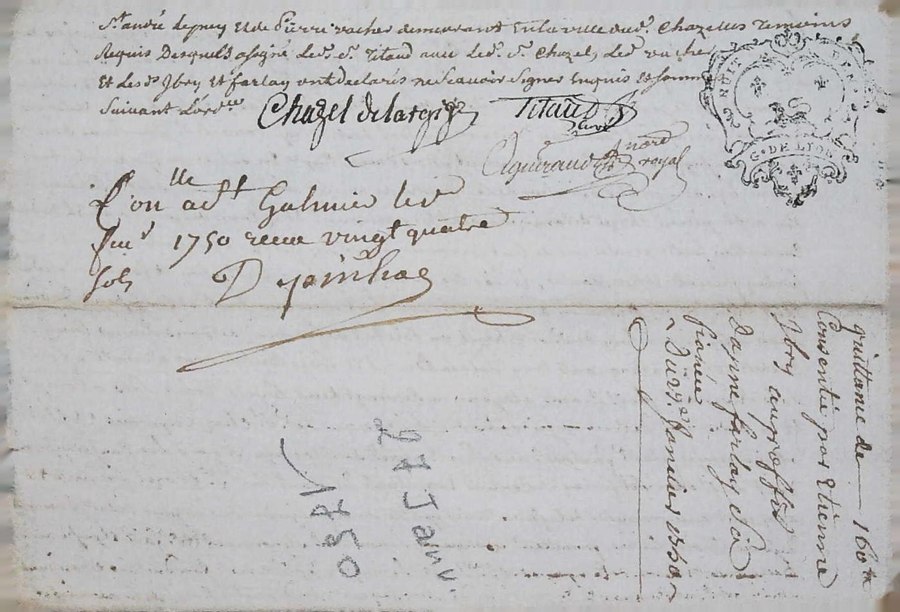 St andré Et de Pierre vacher demeurant En la ville dud. Chazelles Temoins
Requis Desquels a signé led. Sr. Titaud avec led. Sr. Chazel, led. vacher
Et lesd. Ibry Et farlay ont declarés ne scavoir signer Enquis Et sommés
Suivant L'ord.ce
Chazel
Titaud
royal
C'on.lle a St Galmier le
1750 receu vingt quatre
sols
NUIT
G. DE LYON
quittance de 160 tt
Consentie par Etienne
Ibry au proffit
Danne farlay Sa
fiancée
Du 27e Janvier 1750
27 Janv
1750